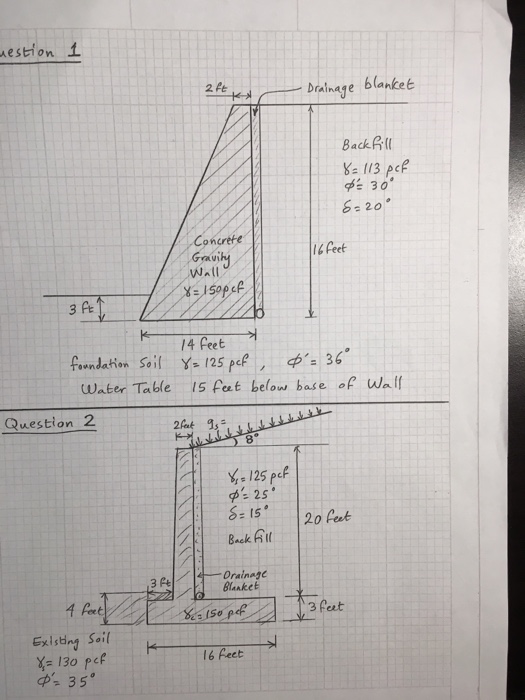 uestion 1
2 ft
Drainage blanket
Backfill
γ= 113 pcf
φ'= 30°
δ= 20°
Concrete
Gravity
Wall
γ= 150pcf
16 feet
3 ft
14 feet
foundation Soil γ= 125 pcf , φ'= 36°
Water Table 15 feet below base of Wall
Question 2
2feet qs =
8°
γ1= 125 pcf
φ'= 25°
δ= 15°
Back fill
20 feet
3 ft
Drainage
Blanket
4 feet
γc= 150 pcf
3 feet
Existing Soil
γ= 130 pcf
φ'= 35°
16 feet